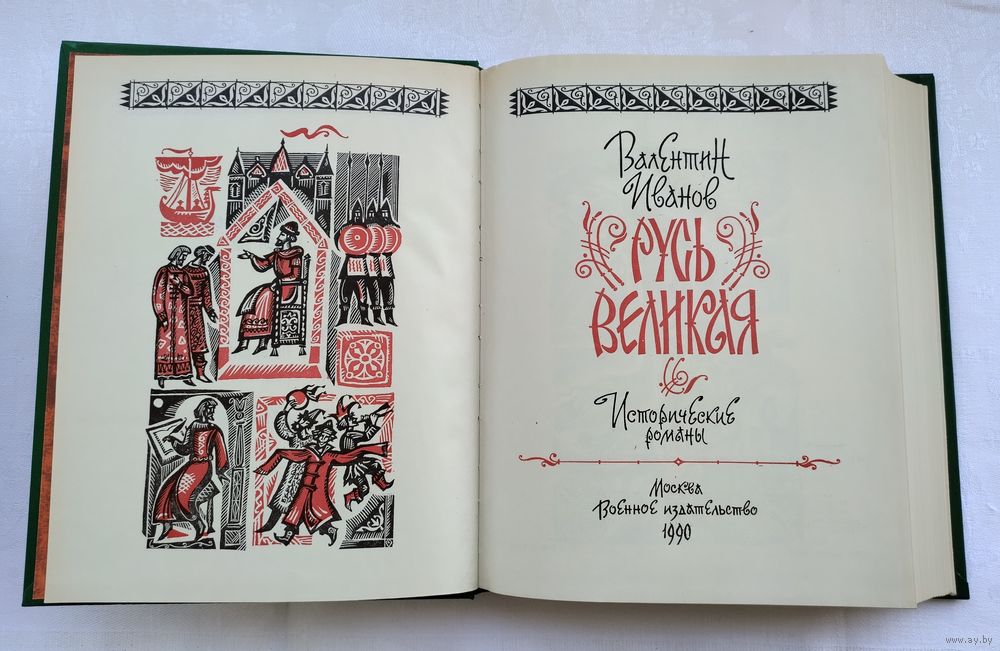 Валентин
Иванов
Русь
Великая
Исторические
романы
Москва
Военное издательство
1990
www.ay.by